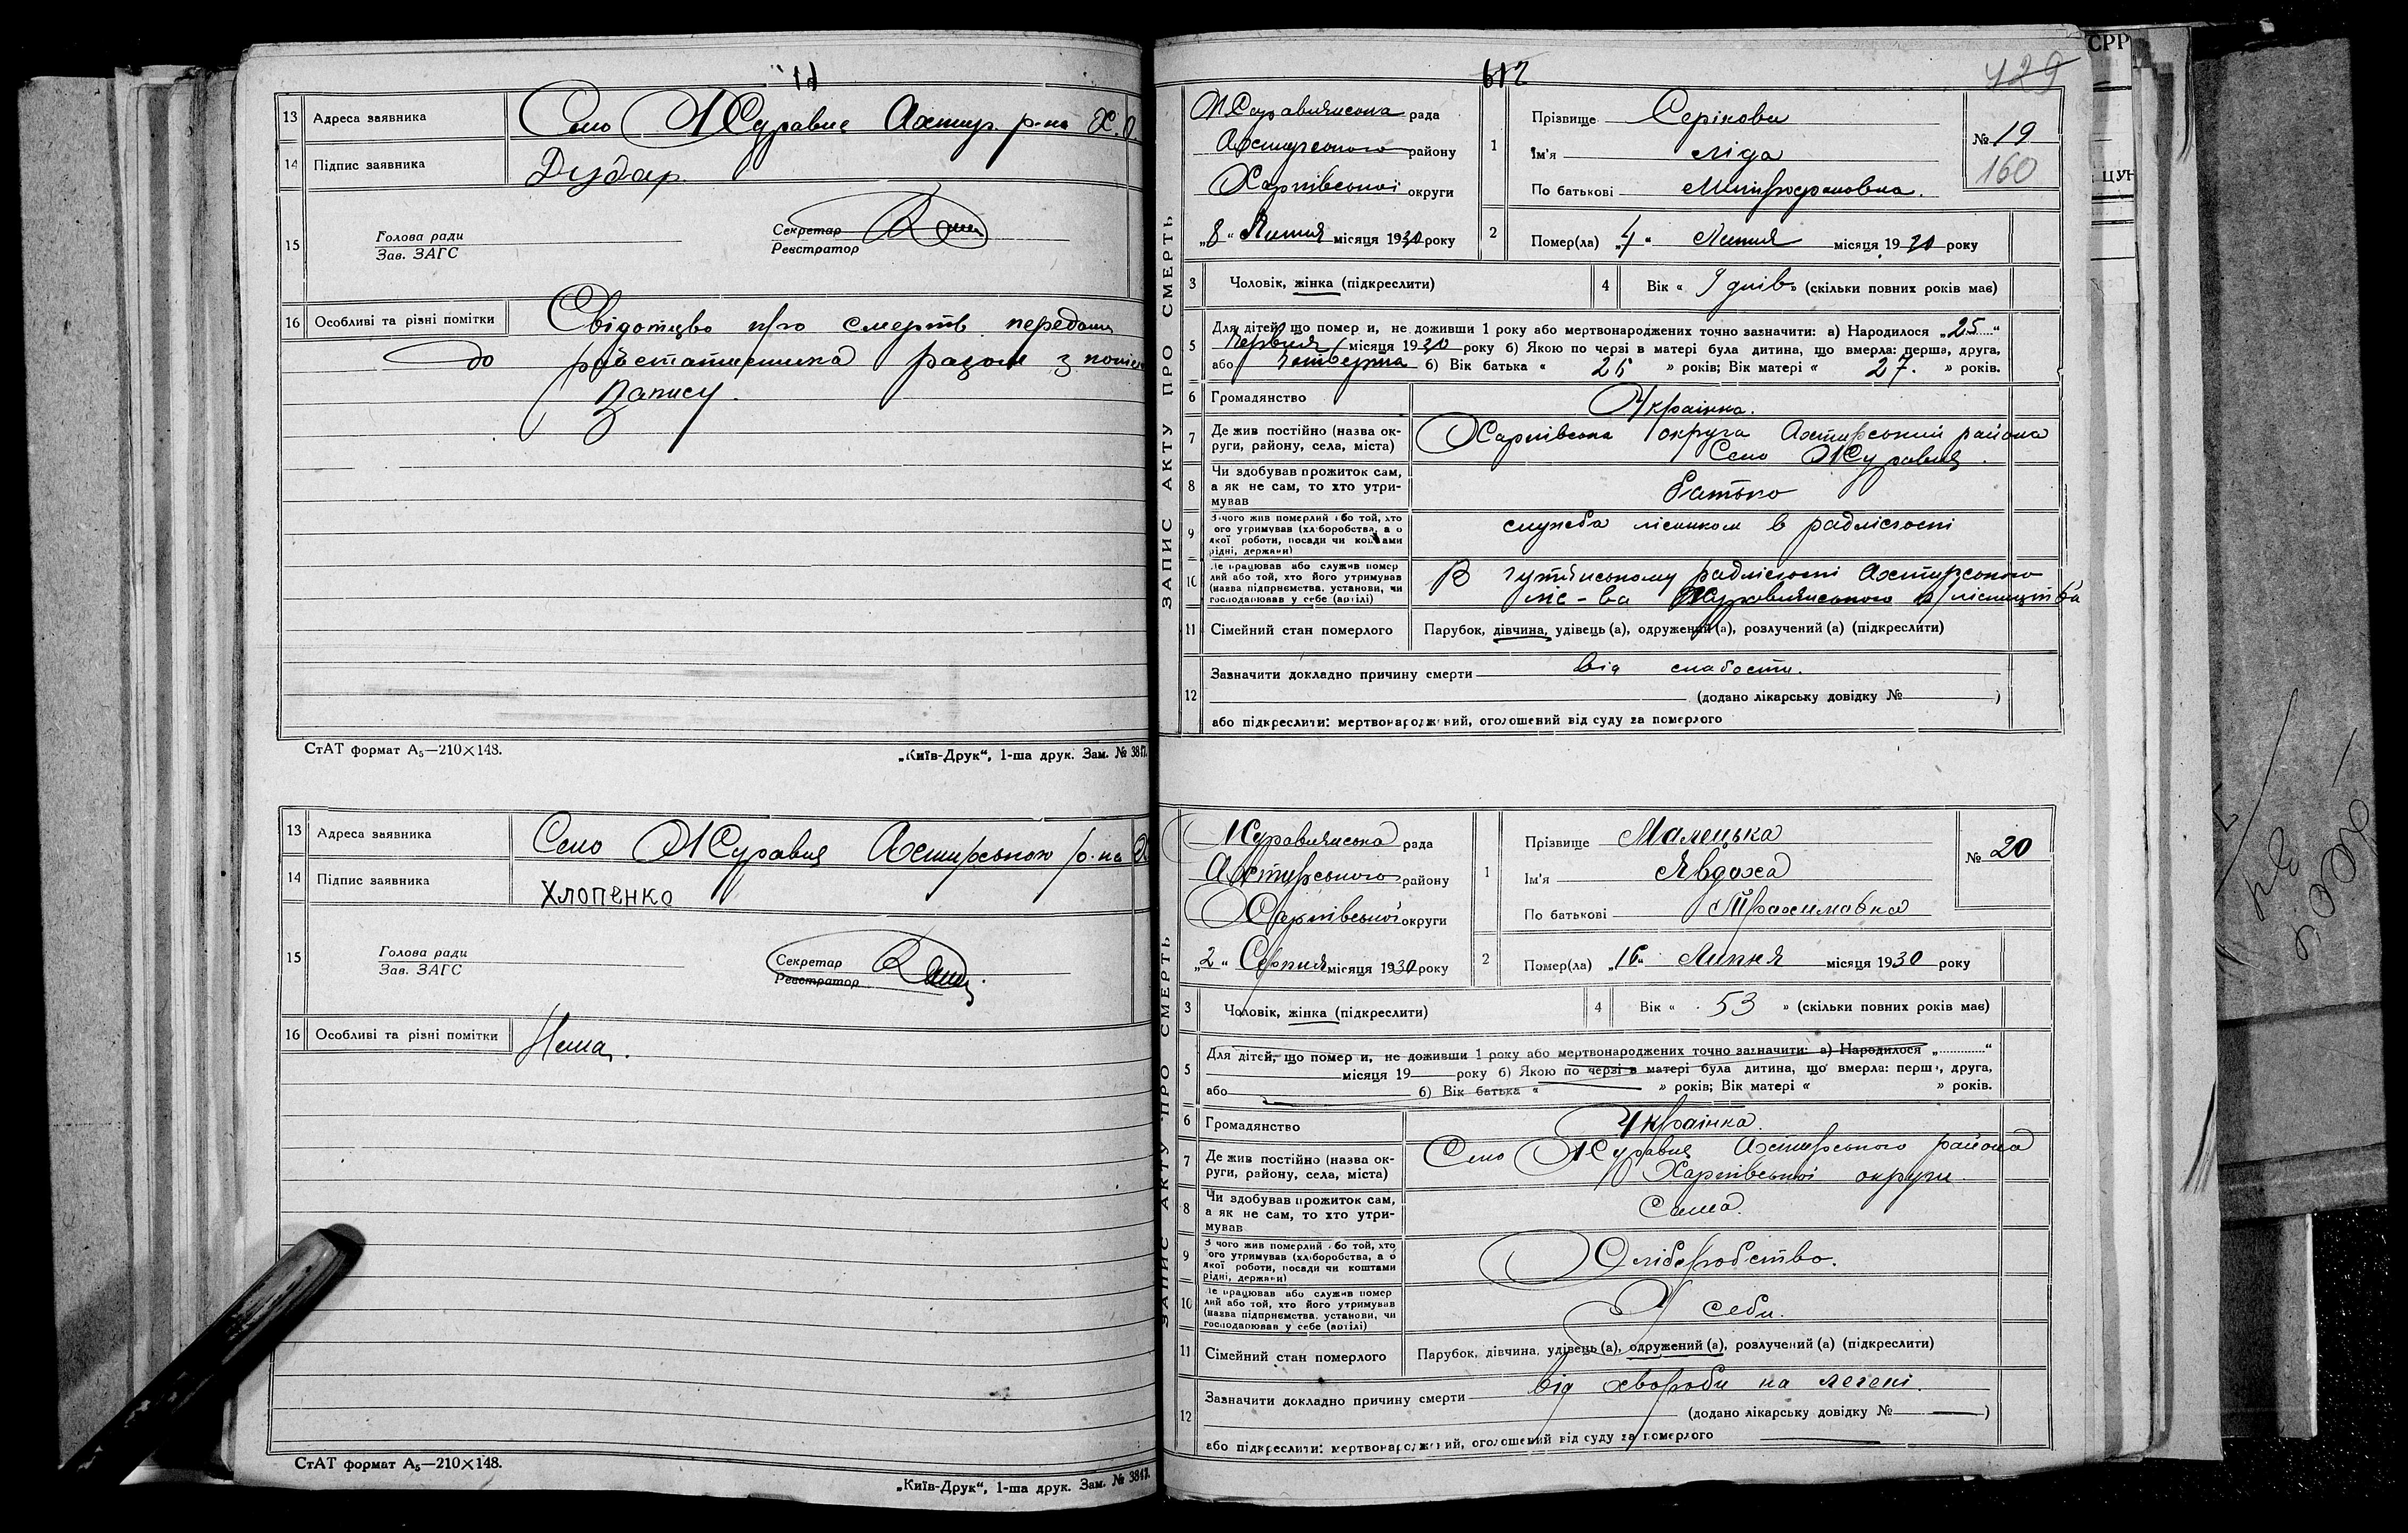 13 Адреса заявника Село Журавне Ахтир. р-на Х. О.
14 Підпис заявника Дудар.
15 Голова ради Секретар
Зав. ЗАГС Реєстратор
16 Особливі та різні помітки Свідотцво про смерть передано
до райстатистика разом з копією
Запису.
СтАТ формат А₅—210×148. „Київ-Друк“, 1-ша друк. Зам. № 3847.
13 Адреса заявника Село Журавне Ахтирського р-на
14 Підпис заявника Хлопенко
15 Голова ради Секретар
Зав. ЗАГС Реєстратор
16 Особливі та різні помітки Нема.
СтАТ формат А₅—210×148.
„Київ-Друк“, 1-ша друк. Зам. № 3847.
612 429
ЗАПИС АКТУ ПРО СМЕРТЬ
Журавнянська рада
Ахтирського району
Харківської округи
„8“ Липня місяця 1930 року
1 Прізвище Серікови
Ім'я Ліда
По батькові Митрофановна.
№ 19
160
2 Помер(ла) „4“ Липня місяця 1930 року
3 Чоловік, жінка (підкреслити) 4 Вік « 9 днів» (скільки повних років має)
5 Для дітей, що померли, не доживши 1 року або мертвонароджених точно зазначити: а) Народилося „25“
Червня місяця 1930 року б) Якою по черзі в матері була дитина, що вмерла: перша, друга,
або Четверта б) Вік батька « 26 » років; Вік матері « 27. » років.
6 Громадянство Українка.
7 Де жив постійно (назва округи, району, села, міста) Харківська округа Ахтирський района
Село Журавне.
8 Чи здобував прожиток сам, а як не сам, то хто утримував батько
9 З чого жив померлий або той, хто його утримував (хліборобства, а о якої роботи, посади чи коштами рідні, держави) служба лісником в радлісгоспі
10 Де працював або служив померлий або той, хто його утримував (назва підприємства, установи, чи господарював у себе (артілі) В гутянському радлісгоспі Ахтирського
ліс-ва Журавнянського лісництва
11 Сімейний стан померлого Парубок, дівчина, удівець (а), одружений (а), розлучений (а) (підкреслити)
12 Зазначити докладно причину смерти від слабости.
(додано лікарську довідку № )
або підкреслити: мертвонароджений, оголошений від суду за померлого
ЗАПИС АКТУ ПРО СМЕРТЬ
Журавнянська рада
Ахтирського району
Харківської округи
„2“ Серпня місяця 1930 року
1 Прізвище Малецька
Ім'я Явдоха
По батькові Трохимовна
№ 20
2 Помер(ла) „16“ Липня місяця 1930 року
3 Чоловік, жінка (підкреслити) 4 Вік « 53 » (скільки повних років має)
5 Для дітей, що померли, не доживши 1 року або мертвонароджених точно зазначити: а) Народилося „ “
місяця 19 року б) Якою по черзі в матері була дитина, що вмерла: перша, друга,
або б) Вік батька « » років; Вік матері « » років.
6 Громадянство Українка.
7 Де жив постійно (назва округи, району, села, міста) Село Журавне Ахтирського района
Харківської округи.
8 Чи здобував прожиток сам, а як не сам, то хто утримував Сама.
9 З чого жив померлий або той, хто його утримував (хліборобства, а о якої роботи, посади чи коштами рідні, держави) Хліборобство.
10 Де працював або служив померлий або той, хто його утримував (назва підприємства, установи, чи господарював у себе (артілі) У себи.
11 Сімейний стан померлого Парубок, дівчина, удівець (а), одружений (а), розлучений (а) (підкреслити)
12 Зазначити докладно причину смерти від хвороби на легені.
(додано лікарську довідку № )
або підкреслити: мертвонароджений, оголошений від суду за померлого